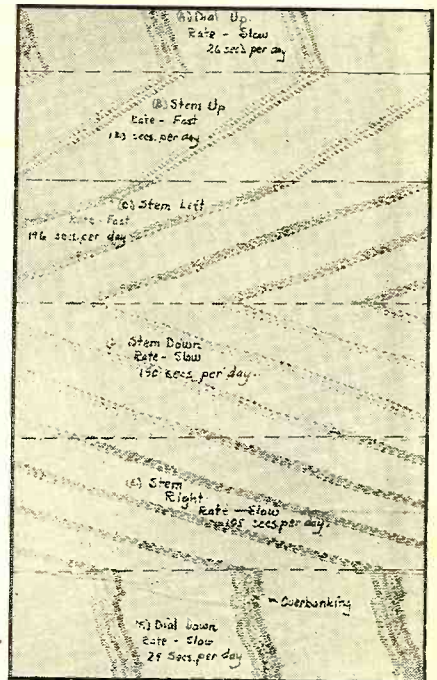 (A) Dial Up
Rate - Slow
26 secs per day
(B) Stem Up
Rate - Fast
secs. per day
(C) Stem Left
Rate - Fast
196 secs. per day
Stem Down
Rate - Slow
190 secs. per day.
(E) Stem
Right
Rate - Slow
195 secs. per day.
Overbanking
Dial Down
Rate - Slow
29 Secs. per day